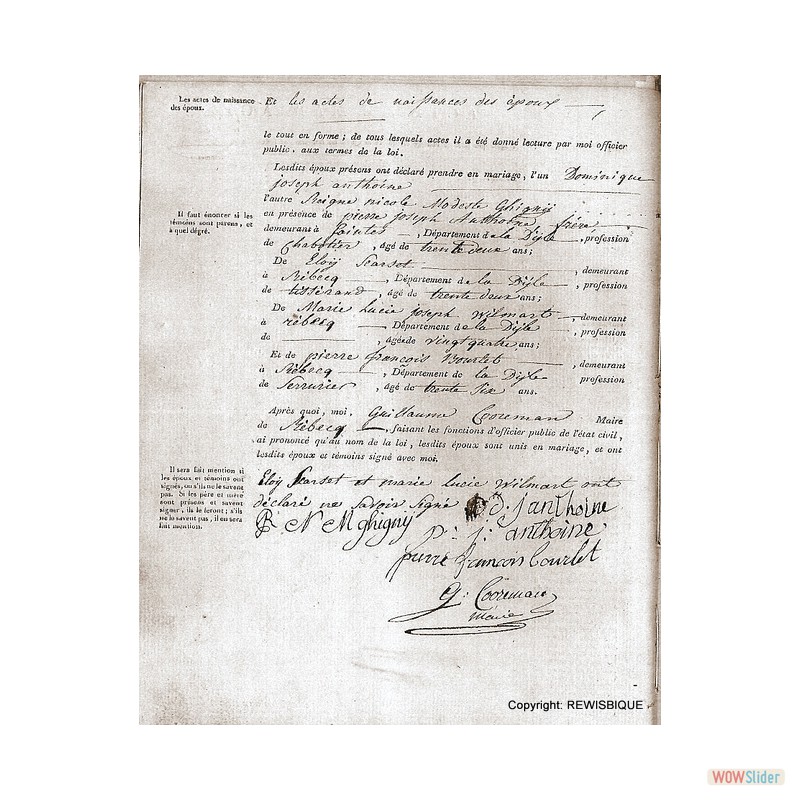 Les actes de naissance
des époux.
Et les actes de naissances des époux
le tout en forme ; de tous lesquels actes il a été donné lecture par moi officier
public, aux termes de la loi.
Lesdits époux présens ont déclaré prendre en mariage, l'un Dominique
joseph anthoine
l'autre Reigne nicole Modeste Ghignij
Il faut énoncer si les
témoins sont parens, et
à quel dégré.
en présence de pierre joseph Anthoine frère
demeurant à Saintes, Département de la Dijle, profession
de Chabotier, âgé de trente deux ans;
De Eloij Scarsot, demeurant
à Rébecq, Département de la Dijle, profession
de tisserand, âgé de trente deux ans;
De Marie Lucie joseph Wilmart, demeurant
à rébecq, Département de la Dijle, profession
de, âgée de vingt quatre ans;
Et de pierre françois Bourlet, demeurant
à Rébecq, Département de la Dijle profession
de Serrurier, âgé de trente Six ans.
Après quoi, moi, Guillaume Cooreman Maire
de Rébecq, faisant les fonctions d'officier public de l'état civil,
ai prononcé qu'au nom de la loi, lesdits époux sont unis en mariage, et ont
lesdits époux et témoins signé avec moi.
Il sera fait mention si
les époux et témoins ont
signés, ou s'ils ne le savent
pas. Si les père et mère
sont présens et savent
signer, ils le feront ; s'ils
ne le savent pas, il en sera
fait mention.
Eloij Scarsot et marie lucie Wilmart ont
déclaré ne savoir signé D. j anthoine
R N M ghignij
p: j: anthoine
pierre françois bourlet
G: Cooreman
Maire
Copyright: REWISBIQUE
WOWSlider